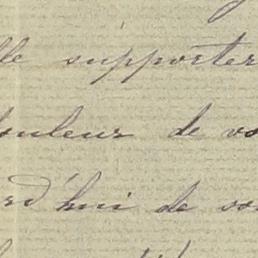 lle supporter
ouleur de vo
rd'hui de vo